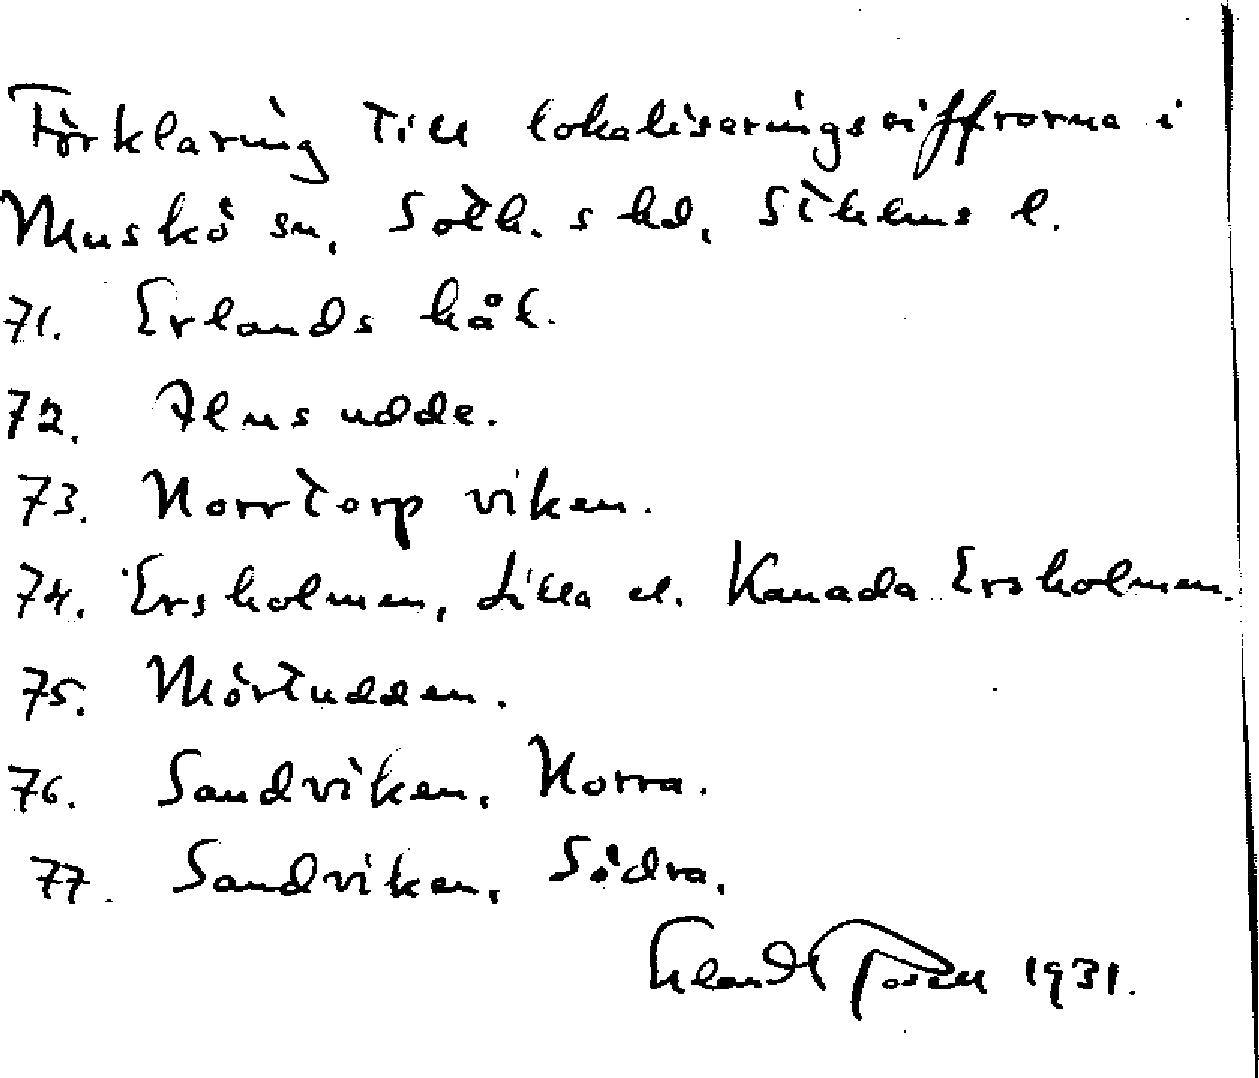 Förklaring till lokaliseringssiffrorna i
Muskö sn, Soth. s hd, Sthlms l.
71. Erlands hål.
72. Alnsudde.
73. Norrtorp viken.
74. Ersholmen, Lilla el. Kanada Ersholmen.
75. Mörtudden.
76. Sandviken, Norra.
77. Sandviken, Södra.
1931.